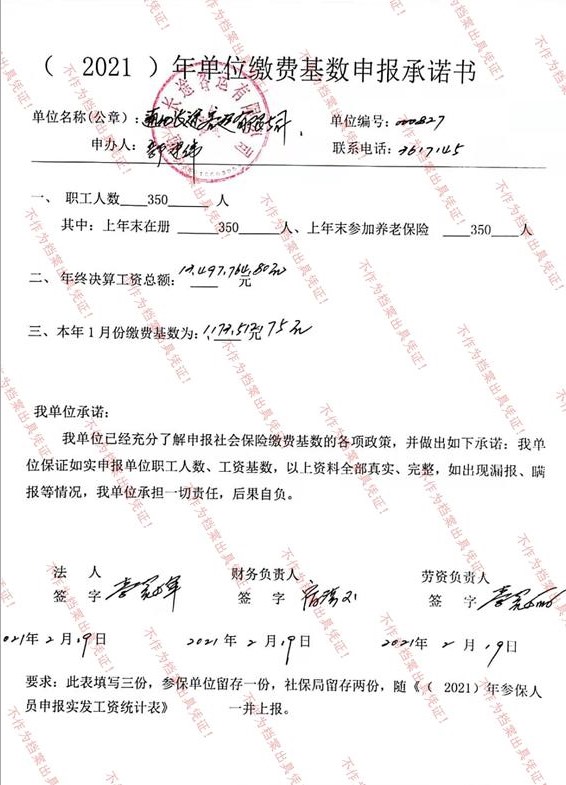 （ 2021 ）年单位缴费基数申报承诺书
单位名称(公章)： 单位编号：000827
申办人： 联系电话：3617145
一、 职工人数 350 人
其中：上年末在册 350 人、上年末参加养老保险 350 人
二、年终决算工资总额： 元
三、本年1月份缴费基数为： 元
我单位承诺：
我单位已经充分了解申报社会保险缴费基数的各项政策，并做出如下承诺：我单
位保证如实申报单位职工人数、工资基数，以上资料全部真实、完整，如出现漏报、瞒
报等情况，我单位承担一切责任，后果自负。
法 人 财务负责人 劳资负责人
签 字 签 字 签 字
021年 2月19日 2021年 2月19日 2021年 2月19日
要求：此表填写三份，参保单位留存一份，社保局留存两份，随《（ 2021）年参保人
员申报实发工资统计表》 一并上报。
不作为档案出具凭证！